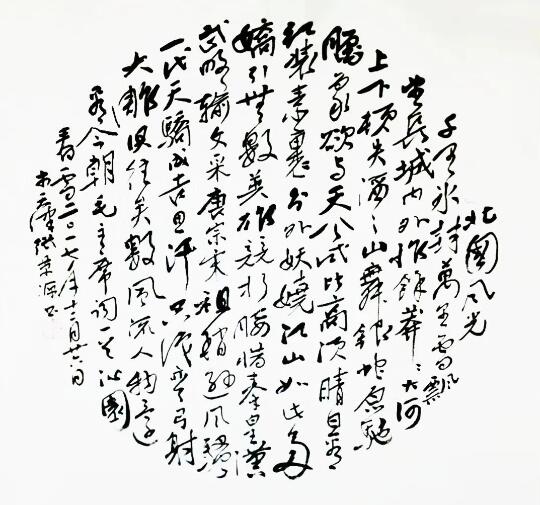 北國风光
千里冰封萬里雪飄
望長城内外惟餘莽〻大河
上下頓失滔〻山舞銀蛇原馳
臘象欲与天公試比高須晴日看
红裝素裹分外妖嬈江山如此多
嬌引無數英雄競折腰惜秦皇漢
武略輸文采唐宗宋祖稍遜风騷
一代天驕成吉思汗只識彎弓射
大雕俱往矣數风流人物還
看今朝毛主席詞一首沁園
春雪二〇一七年十二月廿